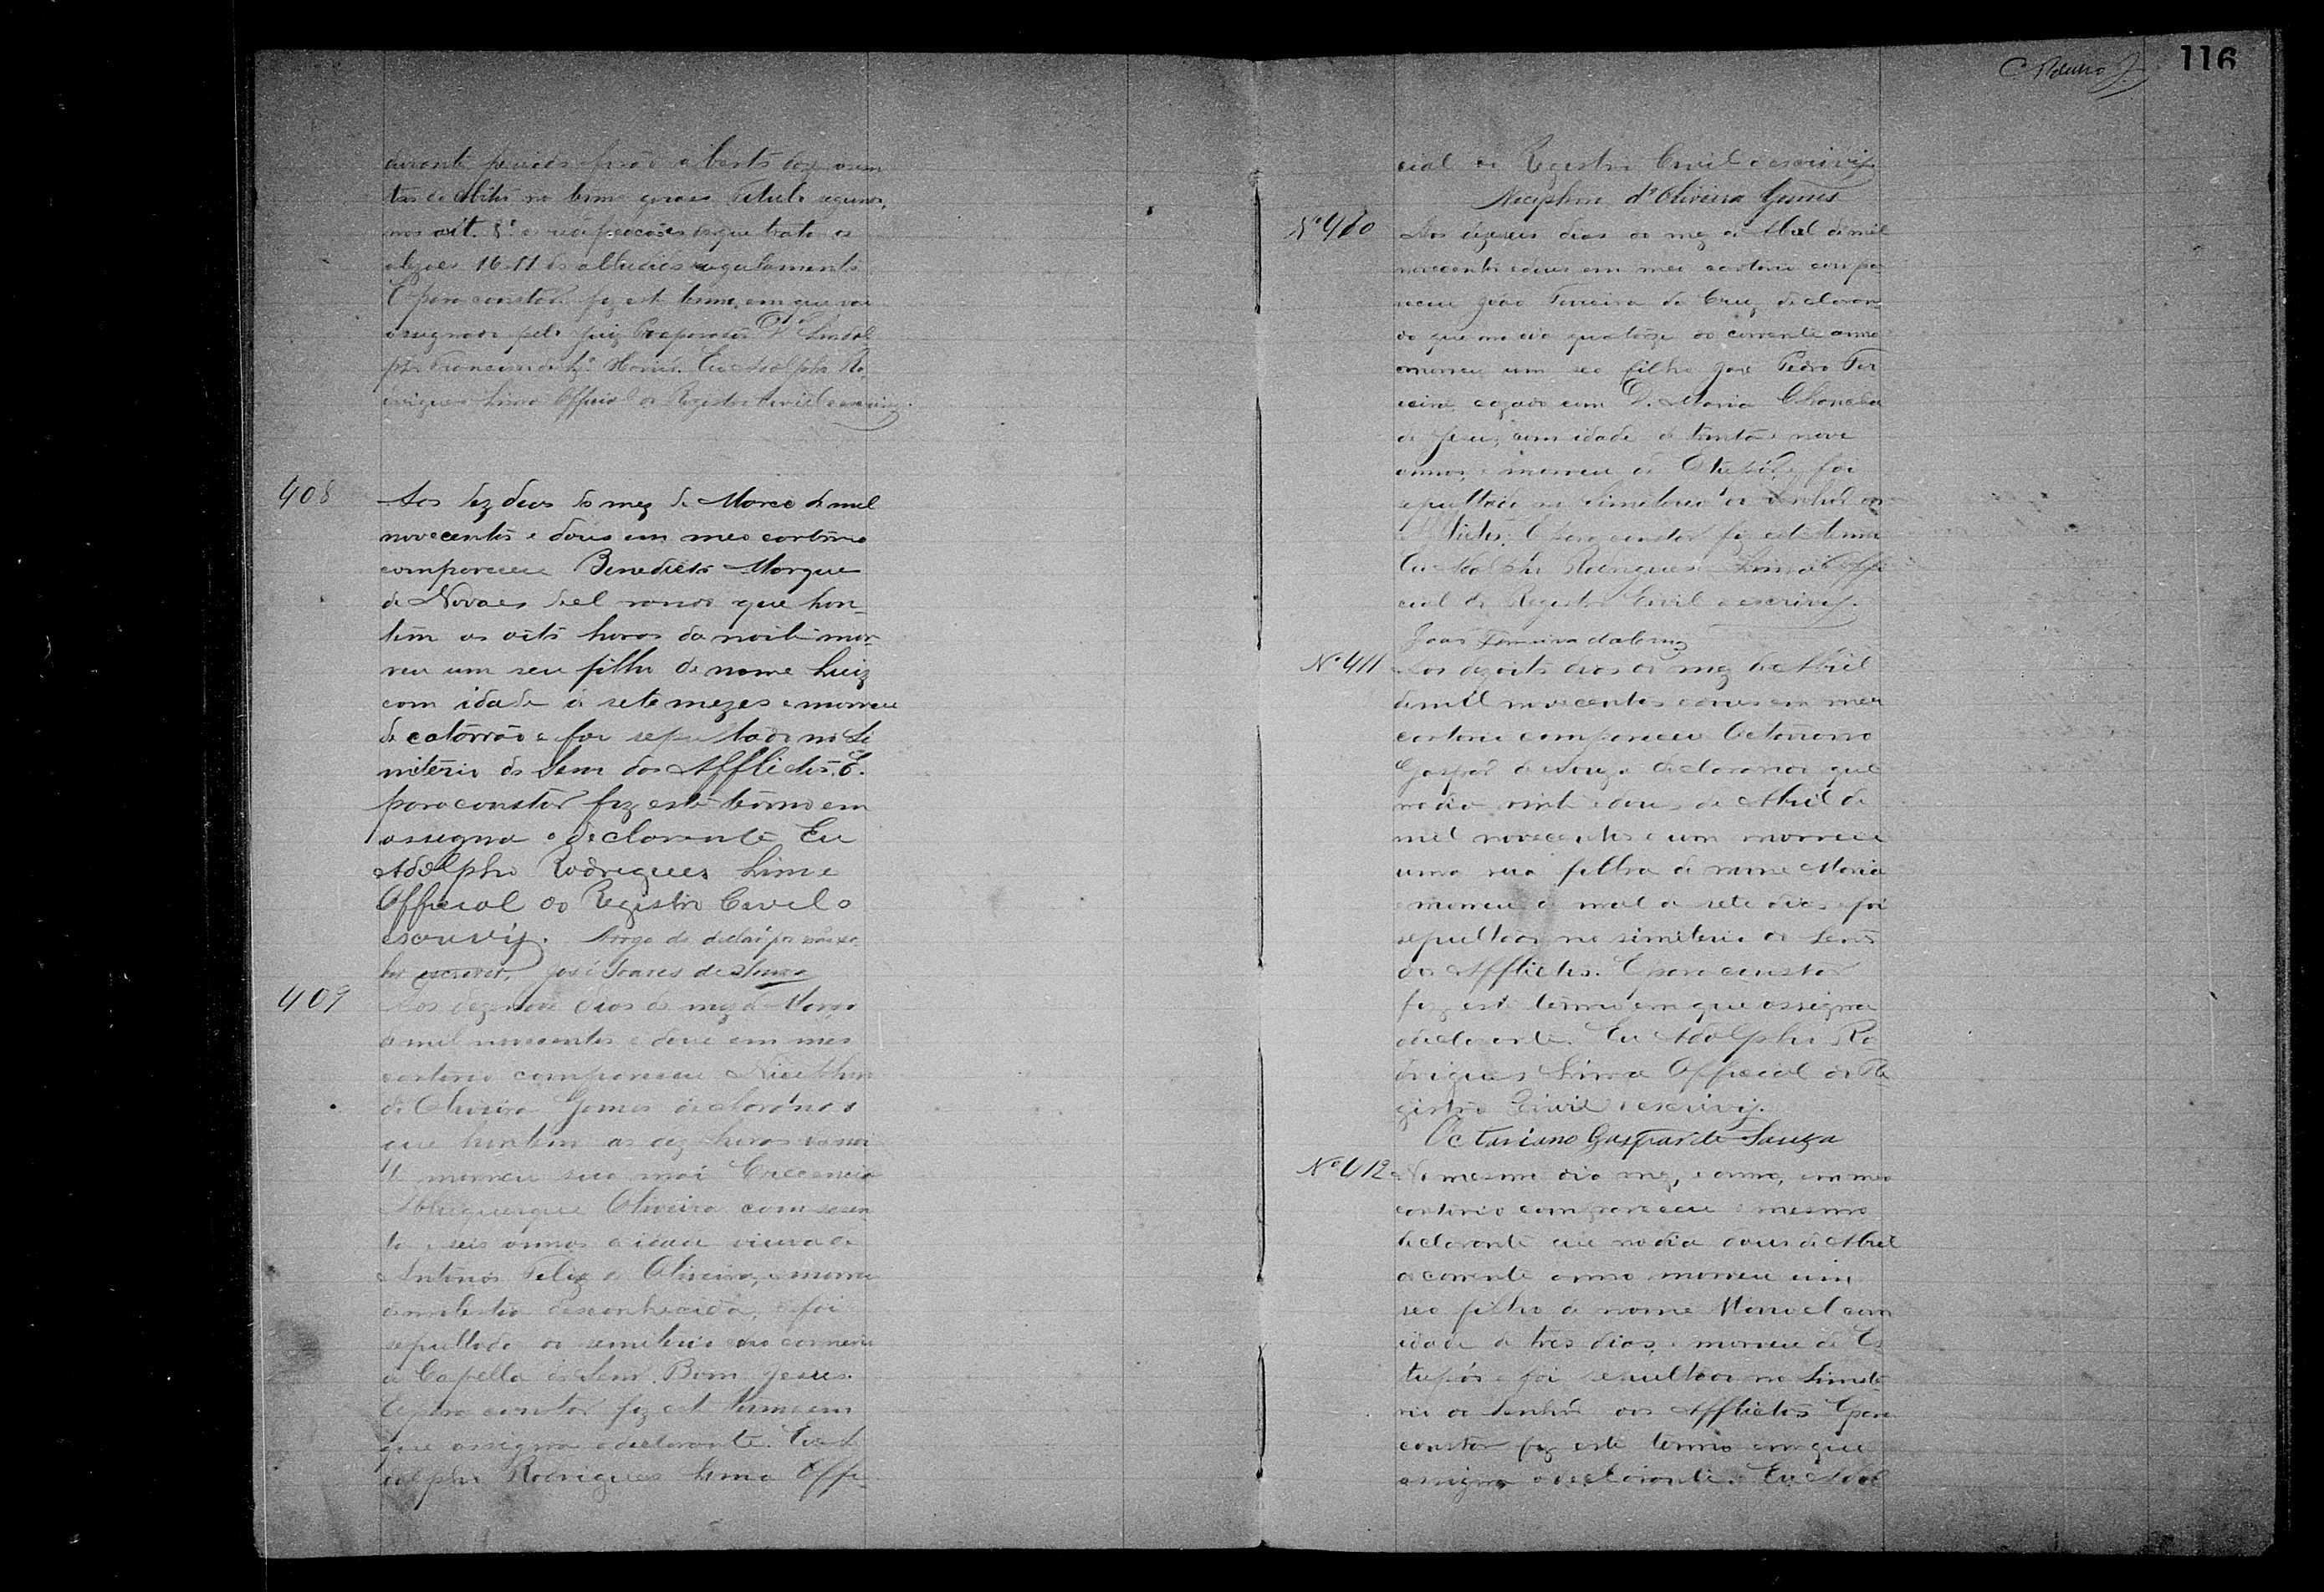 116
durante
no termo
nos art.
E para constar fiz este termo, em que vai
assignado pelo Juiz Preparador Dr.
Eu Adolpho Ro
drigues Lima Official do Registro Civil escrivi.
408
Aos dez dias do mez de Março de mil
novecentos e dous em meo cartorio
compareceu Benedicto Marque
de Novaes declarando que hon-
tem as oito horas da noite mor-
reu um seu filho de nome Luiz
com idade de sete mezes e morreu
de catarrão e foi sepultado no Si
miterio do Senr dos Afflictos. E
para constar fiz este termo em
assigna o declarante Eu
Adolpho Rodrigues Lima
Official do Registro Civel o
escrivij. Arogo do declar por não sa
ber escrever, José Soares de Souza
409
Aos dezenove dias do mez de Março
de mil novecentos e dous em meo
cartorio compareceu Nicephro
de Oliveira Gomes declarando
que hontem as dez horas da noi
te morreu sua mãi Crecencia
Albuquerque Oliveira com sesen
ta e seis annos de idade viuva de
Antonio Feliz de Oliveira, e morreu
de molestia desconhecida, e foi
sepultada no semiterio
da Capella do Senr. Bom Jesus.
E para constar fiz este termo em
que assigna o declarante. Eu A
dolpho Rodrigues Lima Offi-
cial do Registro Civil o escrivij.
Nicephro d'Oliveira Gomes
Nº 410
Aos dezeseis dias do mez de Abril de mil
novecentos e dous em meo cartorio compa
receu João Ferreira da Cruz, declaran-
do que no dia quatorze do corrente anno
morreu um seo filho José Pedro Fer
reira, cazado com D. Maria
de Jesus, com idade de trinta e nove
annos, e morreu de Estupôr, e foi
sepultado no Simiterio do Senhor dos
Afflictos. E para constar fiz este termo
Eu Adolpho Rodrigues Lima Offi
cial do Registro Civil o escrivij.
João Ferreira da Cruz
Nº 411
Aos dezoito dias do mez de Abril
de mil novecentos e dous em meu
cartorio compareceu Octaviano
Gaspar de Souza declarando que
no dia vinte e dous de Abril de
mil novecentos e um morreu
uma sua filha de nome Maria
e morreu de mal de sete dias e foi
sepultada no simiterio do Senr
dos Afflictos. E para constar
fiz este termo em que assigna
o declarante. Eu Adolpho Ro
drigues Lima Official do Re
gistro Civil o escrivij.
Octaviano Gaspar de Souza
Nº 412
No mesmo dia mez, e anno, em meo
cartorio compareceu o mesmo
declarante que no dia dous de Abril
do corrente anno morreu um
seo filho de nome Manoel com
idade de tres dias, e morreu de Es
tupôr e foi sepultado no Simite-
rio do Senhor dos Afflictos E para
constar fiz este termo em que
assigna o declarante. Eu Adol